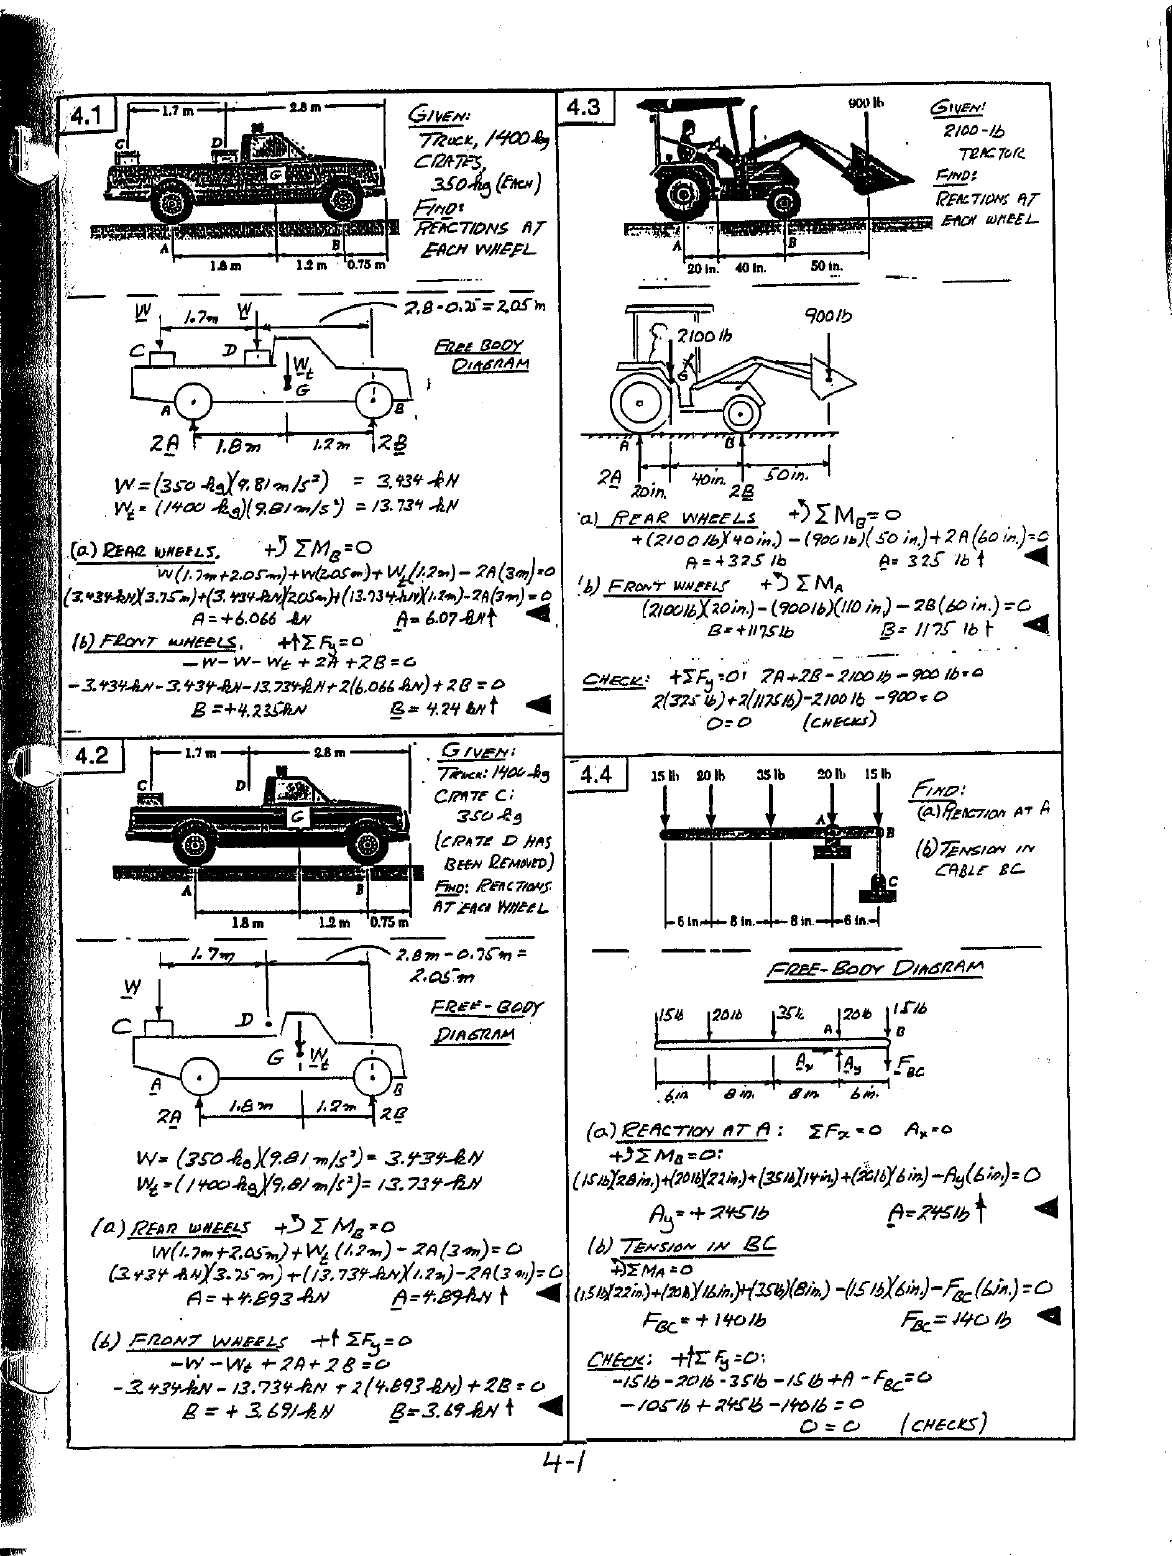 4.1
1.7 m 2.8 m
C D G
A B
1.8 m 1.2 m 0.75 m
GIVEN:
TRUCK, 1400 kg
CRATES,
350 kg (EACH)
FIND:
REACTIONS AT
EACH WHEEL
W 1.7m W 2.8-0.75=2.05m
C D Wt G
A B
FREE BODY
DIAGRAM
2A 1.8m 1.2m 2B
W=(350 kg)(9.81 m/s²) = 3.434 kN
Wt=(1400 kg)(9.81 m/s²) = 13.734 kN
(a) REAR WHEELS. +↺ ΣMB=0
W(1.7m+2.05m)+W(2.05m)+Wt(1.2m)-2A(3m)=0
(3.434kN)(3.75m)+(3.434kN)(2.05m)+(13.734kN)(1.2m)-2A(3m)=0
A=+6.066 kN A=6.07 kN↑
(b) FRONT WHEELS. +↑ΣFy=0
-W-W-Wt+2A+2B=0
-3.434kN-3.434kN-13.734kN+2(6.066 kN)+2B=0
B=+4.235kN B=4.24 kN↑
4.2
1.7 m 2.8 m
C D G
A B
1.8 m 1.2 m 0.75 m
GIVEN:
TRUCK: 1400 kg
CRATE C:
350 kg
(CRATE D HAS
BEEN REMOVED)
FIND: REACTIONS
AT EACH WHEEL
1.7m 2.8m-0.75m=
2.05m
W
C D G Wt
A B
FREE-BODY
DIAGRAM
2A 1.8m 1.2m 2B
W=(350 kg)(9.81 m/s²)=3.434 kN
Wt=(1400 kg)(9.81 m/s²)=13.734 kN
(a) REAR WHEELS +↺ ΣMB=0
W(1.7m+2.05m)+Wt(1.2m)-2A(3m)=0
(3.434 kN)(3.75m)+(13.734kN)(1.2m)-2A(3m)=0
A=+4.893 kN A=4.89kN↑
(b) FRONT WHEELS +↑ΣFy=0
-W-Wt+2A+2B=0
-3.434kN-13.734kN+2(4.893 kN)+2B=0
B=+3.691 kN B=3.69 kN↑
4.3
900 lb
G
A B
20 in. 40 in. 50 in.
GIVEN:
2100-lb
TRACTOR
FIND:
REACTIONS AT
EACH WHEEL
2100 lb 900 lb
G
A B
2A 20in. 40in. 2B 50in.
(a) REAR WHEELS +↺ΣMB=0
+(2100 lb)(40in.)-(900 lb)(50 in.)+2A(60in.)=0
A=+325 lb A=325 lb↑
(b) FRONT WHEELS +↺ΣMA
(2100lb)(20in.)-(900lb)(110 in.)-2B(60in.)=0
B=+1175lb B=1175 lb↑
CHECK: +ΣFy=0: 2A+2B-2100 lb-900 lb=0
2(325 lb)+2(1175lb)-2100 lb-900=0
0=0 (CHECKS)
4.4
15 lb 20 lb 35 lb 20 lb 15 lb
A B
C
6 in. 8 in. 8 in. 6 in.
FIND:
(a) REACTION AT A
(b) TENSION IN
CABLE BC
FREE-BODY DIAGRAM
15lb 20lb 35lb 20lb 15lb
A B
Ax Ay FBC
6in. 8in. 8in. 6in.
(a) REACTION AT A: ΣFx=0 Ax=0
+↺ΣMB=0:
(15lb)(28in.)+(20lb)(22in.)+(35lb)(14in.)+(20lb)(6in.)-Ay(6in.)=0
Ay=+245lb A=245lb↑
(b) TENSION IN BC
+↺ΣMA=0
(15lb)(22in.)+(20lb)(16in.)+(35lb)(8in.)-(15lb)(6in.)-FBC(6in.)=0
FBC=+140lb FBC=140 lb
CHECK: +↑ΣFy=0:
-15lb-20lb-35lb-15lb+A-FBC=0
-105lb+245lb-140lb=0
0=0 (CHECKS)
4-1